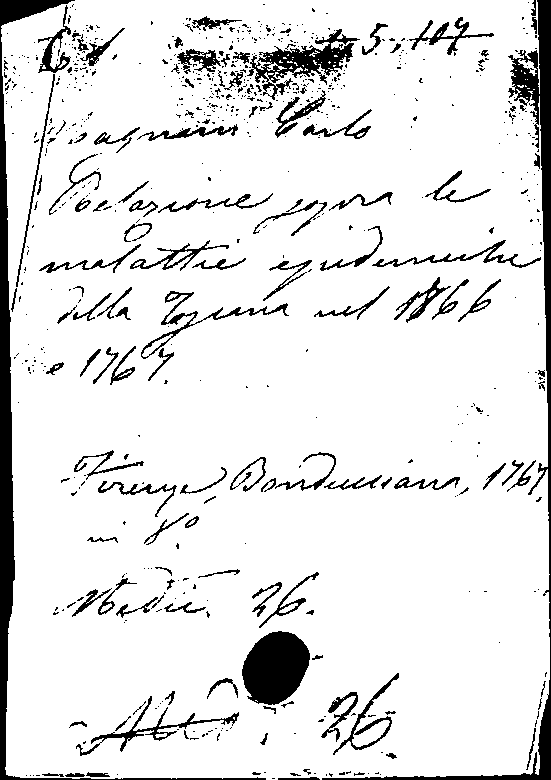 C 1. 5.107
Magnani Carlo
Relazione sopra le
malattie epidemiche
della Toscana nel 1866
e 1767.
Firenze, Bonducciana, 1767,
in 8.º
Medic. 26.
Med. 26